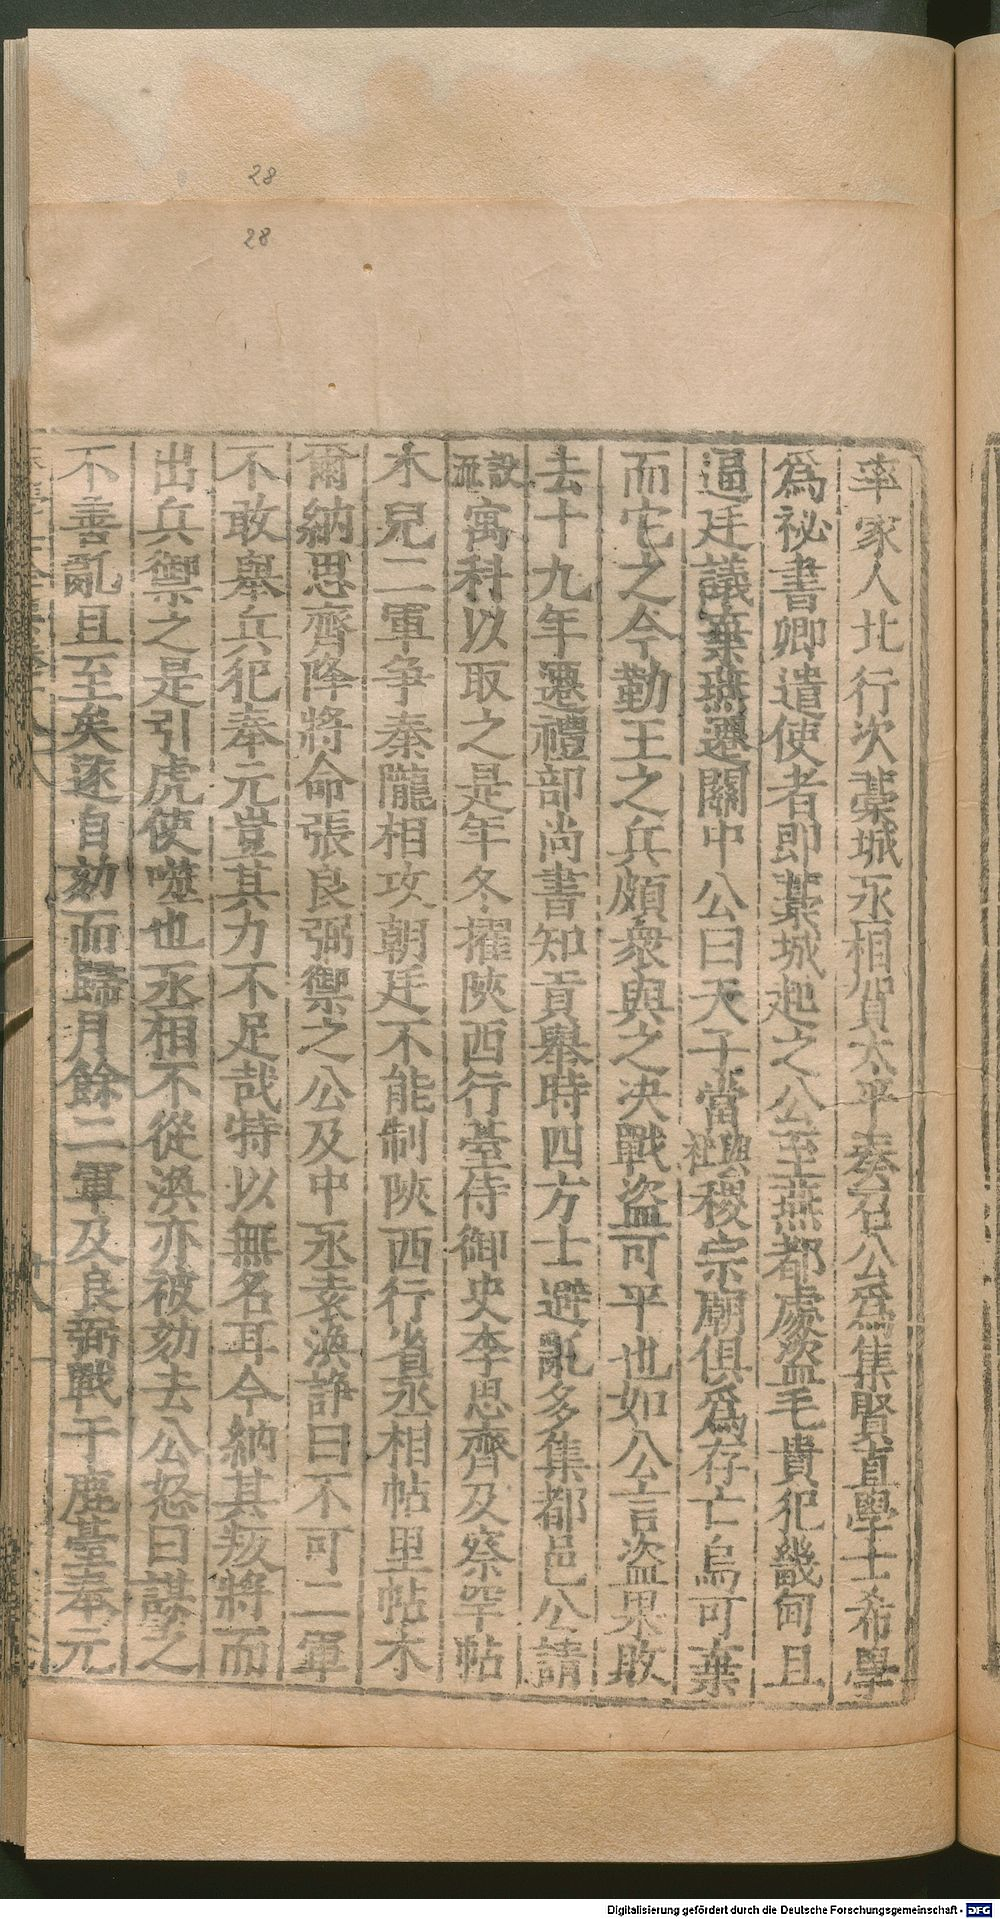 28
28
率家人北行次藁城丞相賀太平奏召公爲集賢直學士希學
爲祕書卿遣使者即藁城起之公至燕都處盜毛貴犯畿甸且
逼廷議棄燕遷關中公曰天子當與社稷宗廟俱爲存亡烏可棄
而它之今勤王之兵頗衆與之決戰盜可平也如公言盜果敗
去十九年遷禮部尚書知貢舉時四方士避亂多集都邑公請
設流寓科以取之是年冬擢陝西行臺侍御史李思齊及察罕帖
木兒二軍爭秦隴相攻朝廷不能制陝西行省丞相帖里帖木
爾納思齊降將命張良弼禦之公及中丞袁渙諍曰不可二軍
不敢舉兵犯奉元豈其力不足哉特以無名耳今納其叛將而
出兵禦之是引虎使噬也丞相不從渙亦被劾去公怒曰謀之
不善亂且至矣遂自劾而歸月餘二軍及良弼戰于鹿臺奉元
Digitalisierung gefördert durch die Deutsche Forschungsgemeinschaft - DFG